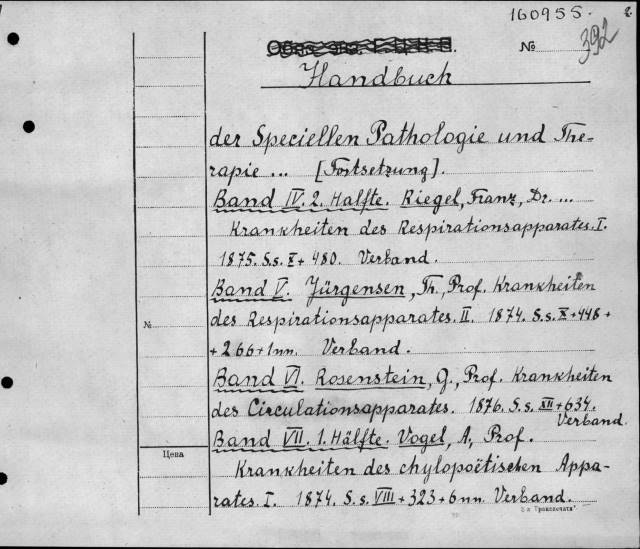 160955.
2
№ 392
Handbuch
der Speciellen Pathologie und The-
rapie ... [Fortsetzung].
Band IV. 2. Halfte. Riegel, Franz, Dr. ...
Krankheiten des Respirationsapparates. I.
1875. S.s. X + 480. Verband.
Band V. Jürgensen, Th., Prof. Krankheiten
des Respirationsapparates. II. 1874. S.s. X + 448 +
+ 266 + 1 nn. Verband.
Band VI. Rosenstein, Q., Prof. Krankheiten
des Circulationsapparates. 1876. S.s. XII + 634.
Verband.
Band VII. 1. Hälfte. Vogel, A., Prof.
Krankheiten des chylopoëtischen Appa-
rates. I. 1874. S.s. VIII + 323 + 6 nn. Verband.
№
Цена